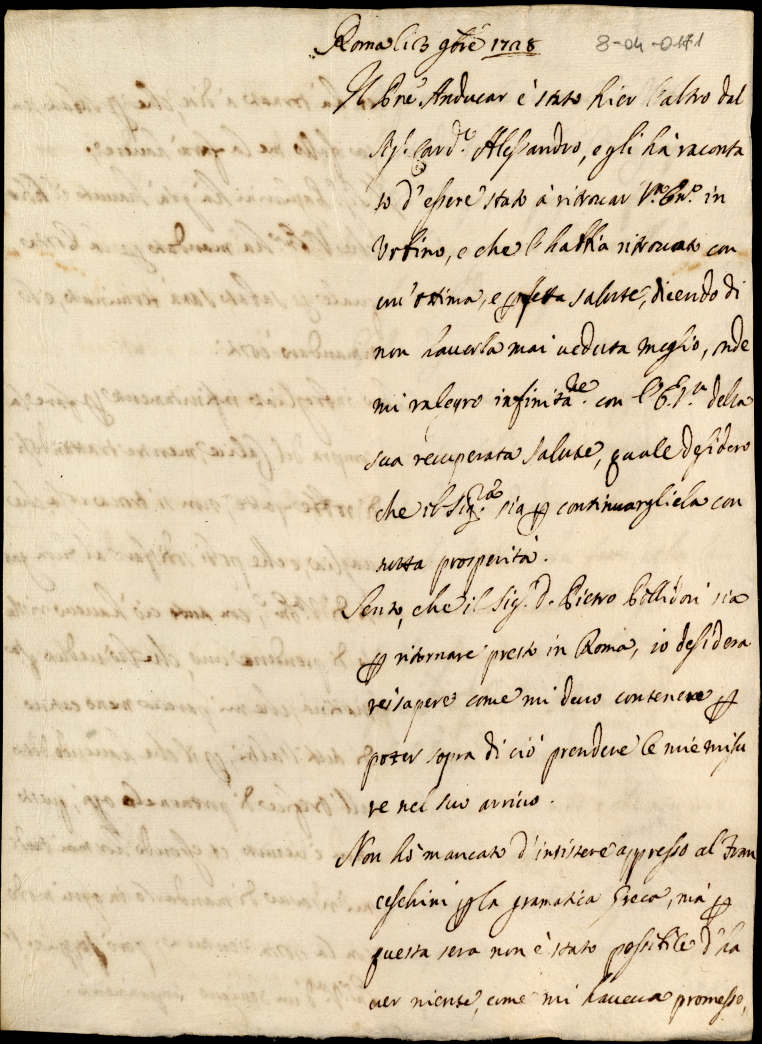 Roma li 3 9bre 1728
8-04-0171
Il Pne. Anducar è stato hier l'altro dal
Sig. Card.le Alessandro, e gli hà racconta
to d'essere stato à ritrouar V.ra Em.a in
Urbino, e che l'habbia ritrouata con
un'ottima, e pfetta salute, dicendo di
non hauerla mai ueduta meglio, onde
mi ralegro infinitam.te con l'E.V.ra della
sua recuperata salute, quale desidero
che il Sig.re sia p continuargliela con
tutta prosperità.
Sento, che il Sig. D. Pietro Pollidori sia
p ritornare presto in Roma, io desidera
rei sapere come mi deuo contenere p
poter sopra di ciò prendere le mie misu
re nel suo arriuo.
Non hò mancato d'insistere appresso al Fran
ceschini p la gramatica Greca, mà p
questa sera non è stato possibile d'ha
uer niente, come mi haueua promesso,